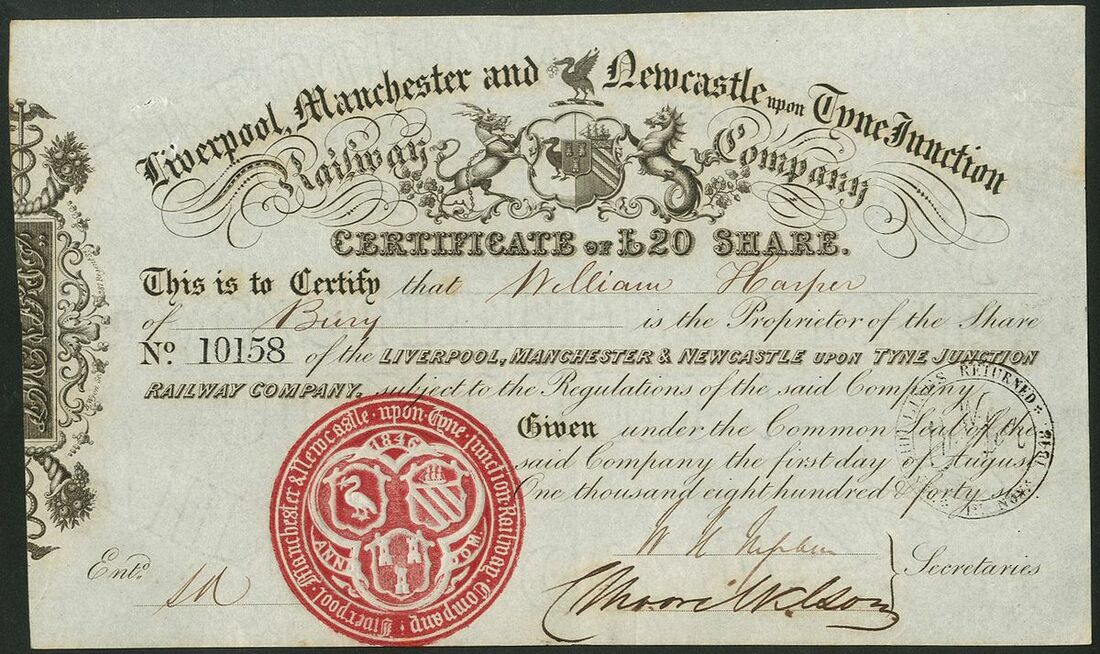 Liverpool, Manchester and Newcastle upon Tyne Junction
Railway Company
CERTIFICATE OF £20 SHARE.
This is to Certify that William Harper
of Bury is the Proprietor of the Share
No. 10158 of the LIVERPOOL, MANCHESTER & NEWCASTLE UPON TYNE JUNCTION
RAILWAY COMPANY. subject to the Regulations of the said Company
Given under the Common Seal of the
said Company the first day of August
One thousand eight hundred & forty six.
Liverpool Manchester & Newcastle upon Tyne Junction Railway Company
1846
ANNO DOM.
SHILLINGS RETURNED
Entd.
Secretaries